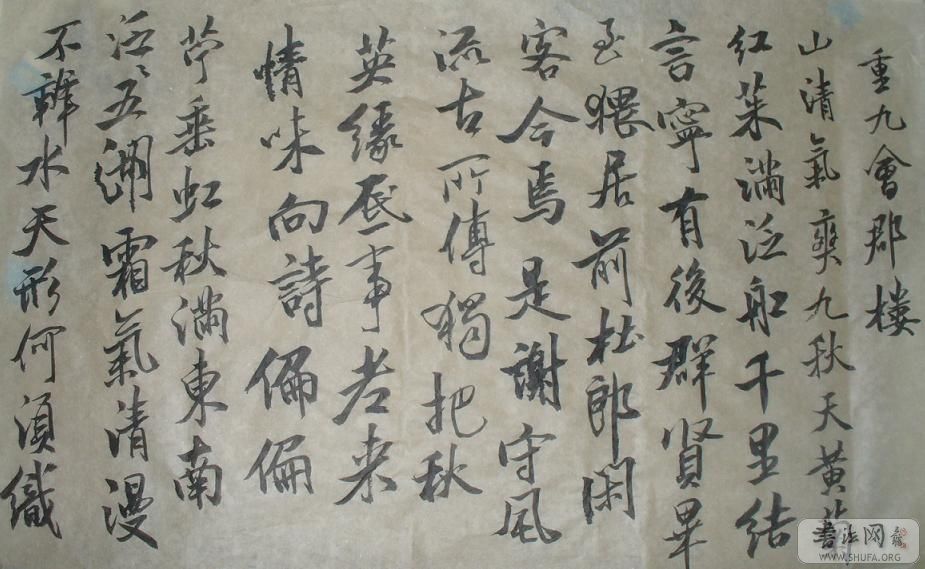 重九會郡樓
山清氣爽九秋天黃菊
紅茱滿泛船千里結
言寧有後群賢畢
至猥居前杜郎閑
客今焉是謝守風
流古所傳獨把秋
英緣底事老来
情味向詩偏偏
苧垂虹秋滿東南
泛〻五湖霜氣清漫
不辨水天形何須織
書法网
WWW.SHUFA.ORG